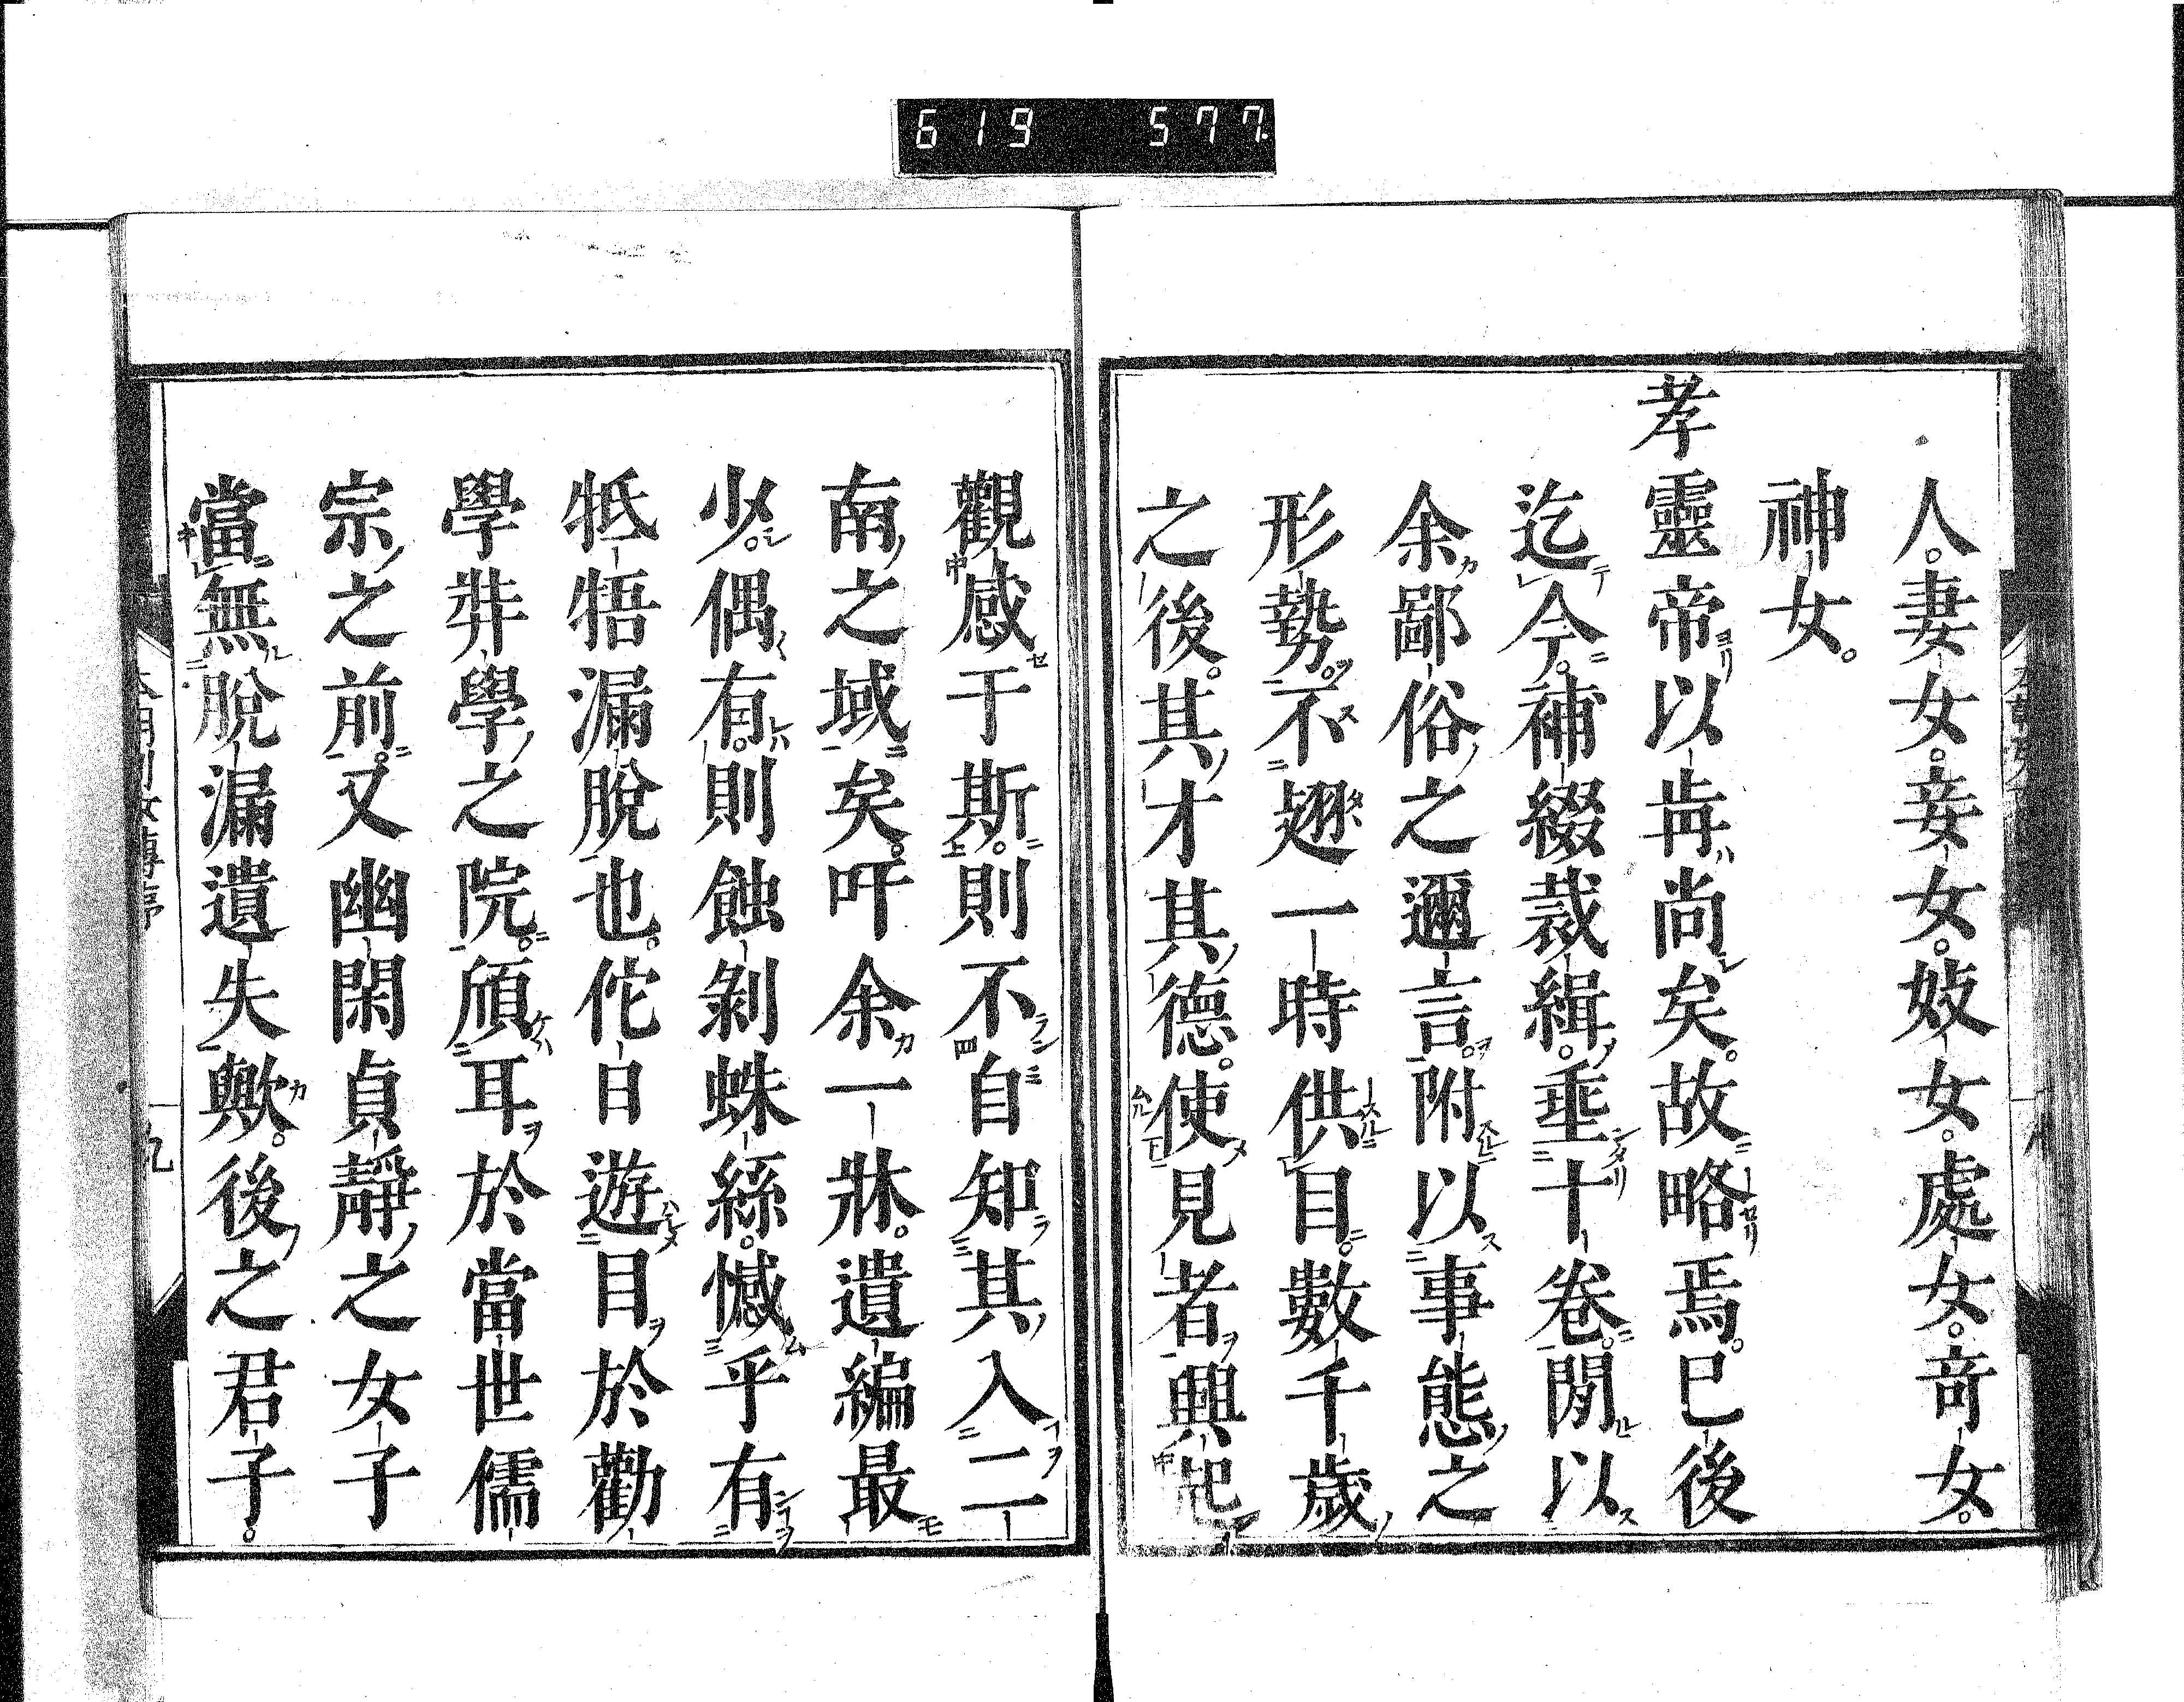 619 577.
人。妻女。妾女。妓女。處女。奇女。
神女。
孝靈帝以歬尚矣。故略焉。已後
迄今。補綴裁緝。垂十卷。閒以
余鄙俗之邇言。附以事態之
形勢。不翅一時供目。數千歲
之後。其才其德。使見者興起
觀感于斯。則不自知其入二
南之域矣。吁余一牀。遺編最
少。偶有。則蝕剝蛛絲。憾乎有
牴牾漏脫也。佗日遊目於勸
學弉學之院。頎耳於當世儒
宗之前。又幽閑貞靜之女子
當無脫漏遺失歟。後之君子。
九